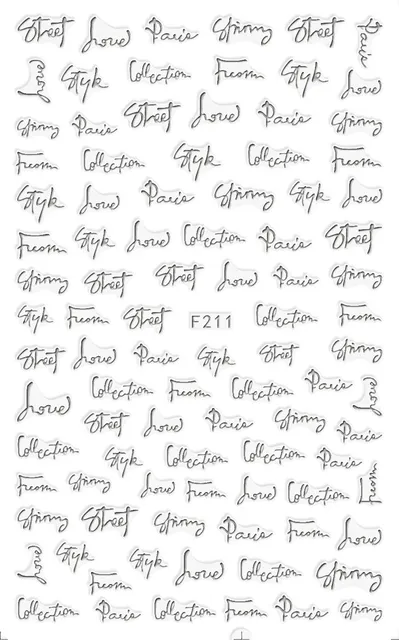 Street Love Paris Spring Street Paris
Love Style Collection Freesm Style Love
Spring Paris Street Love Paris Spring
Freesm Collection Style Collection Freesm
Style Love Paris Spring Style Love
Freesm Style Love Collection Paris Street
Spring Street Street Love Paris Spring
Style Freesm Street F211 Collection Freesm
Street Love Paris Style Street Spring
Love Collection Freesm Collection Paris Love
Street Love Paris Spring Paris
Collection Style Collection Collection Paris
Freesm Spring Love Freesm Love Collection Freesm
Spring Street Spring Paris Freesm Love
Love Style Freesm Style Love Collection Spring
Collection Paris Collection Freesm Paris Spring